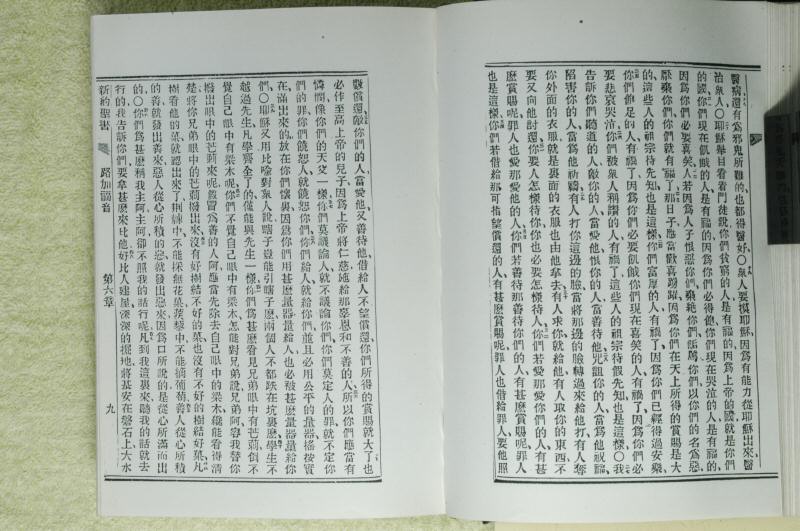 醫病還有爲邪鬼所難的也都得醫好○衆人要摸耶穌因爲有能力從耶穌出來醫
治衆人○耶穌舉目看着門徒說你們貧窮的人是有福的因爲上帝的國就是你們
的國你們現在飢餓的人是有福的因爲你們必得飽你們現在哭泣的人是有福的
因爲你們必要喜笑人若因爲人子恨惡你們棄絕你們辱罵你們以你們的名爲惡
厭棄你們你們就有福了那日子應當歡喜踴躍因爲你們在天上所得的賞賜是大
的這些人的祖宗待先知也是這樣你們富厚的人有禍了因爲你們已經得過安樂
你們飽足的人有禍了因爲你們必要飢餓你們現在喜笑的人有禍了因爲你們必
要悲哀哭泣你們被衆人稱讚的人有禍了這些人的祖宗待假先知也是這樣○我
告訴你們聽道的人敵你的人當愛他恨你的人當善待他咒詛你的人當爲他祝福
陷害你的人當爲他祈禱有人打你這邊的臉當將那邊的臉轉過來給他打有人奪
你外面的衣服就是裏面的衣服也由他拿去有人求你就給他有人取你的東西不
要又向他討還你要人怎樣待你你也必要怎樣待人你們若愛那愛你們的人有甚
麽賞賜呢罪人也愛那愛他的人你們若善待那善待你們的人有甚麽賞賜呢罪人
也是這樣你們若借給那可指望償還的人有甚麽賞賜呢罪人也借給罪人要他照
數償還敵你們的人當愛他又善待他借給人不望償還你們所得的賞賜就大了也
必作至高上帝的兒子因爲上帝將仁慈施給那辜恩和不善的人所以你們應當有
憐憫像你們的天父一樣你們莫議論人就不議論你們你們莫定人的罪就不定你
們的罪你們饒恕人就饒恕你們你們給人就給你們並且必用公平的量器搖按實
在滿出來的放在你們懷裏因爲你們用甚麽量器量給人也必被甚麽量器量給你
們○耶穌又用比喻對衆人說瞎子豈能引瞎子麽兩個人不都跌在坑裏麽學生不
越過先生凡學齊全了的僅能與先生一樣你們爲甚麽看見兄弟眼中有芒莿倒不
覺自己眼中有梁木呢你們不覺自己眼中有梁木怎能對兄弟說兄弟阿容我替你
撥出眼中的芒莿來呢假冒爲善的人阿應當先除去自己眼中的梁木纔能看得清
楚將你兄弟眼中的芒莿撥出來沒有好樹結不好的菓也沒有不好的樹結好菓凡
樹看他的菓就認出來了荆棘中不能採無花菓蒺藜中不能摘葡萄善人從心所積
的善就發出善來惡人從心所積的惡就發出惡來因爲口所說的是從心所滿而出
的○你們爲甚麽稱我主阿主阿卻不照我的話行呢凡到我這裏來聽我的話就去
行的我告訴你們要拿甚麽來比他好比人建屋深深的掘地將基安在磐石上大水
新約聖書
路加福音
第六章
九